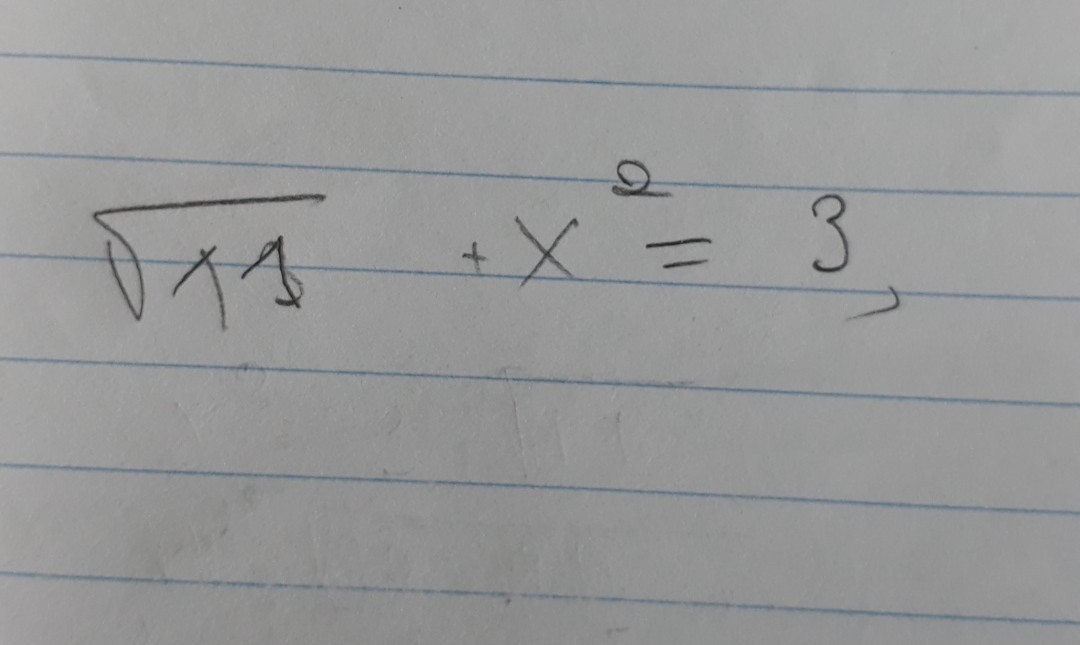 √11 + x² = 3,